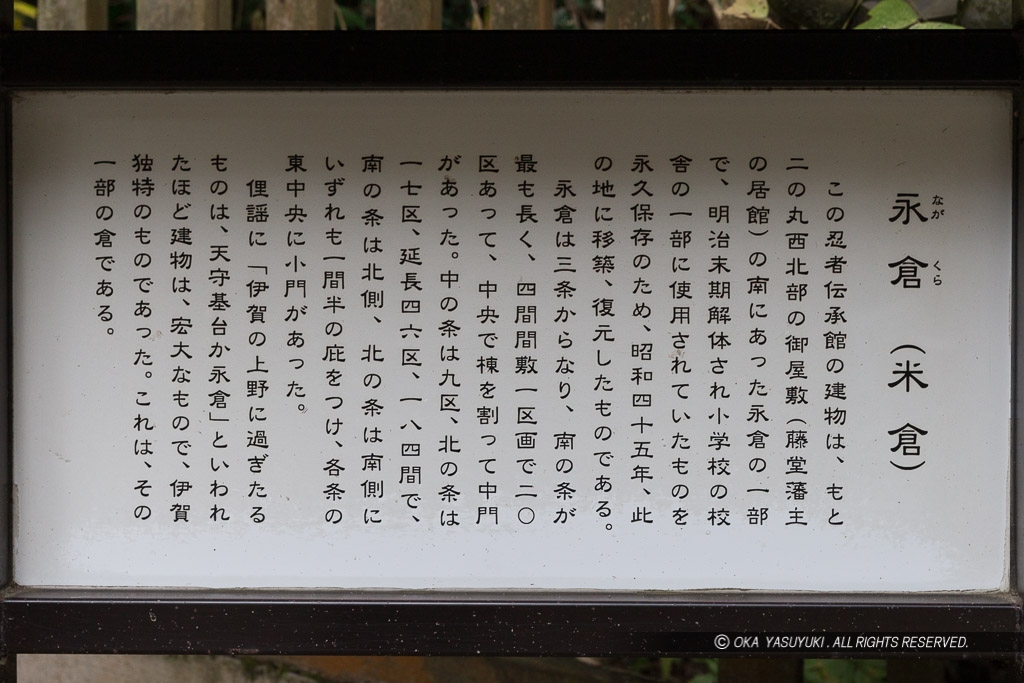 永倉（米倉）
なが くら
この忍者伝承館の建物は、もと
二の丸西北部の御屋敷（藤堂藩主
の居館）の南にあった永倉の一部
で、明治末期解体され小学校の校
舎の一部に使用されていたものを
永久保存のため、昭和四十五年、此
の地に移築、復元したものである。
永倉は三条からなり、南の条が
最も長く、四間間敷一区画で二〇
区あって、中央で棟を割って中門
があった。中の条は九区、北の条は
一七区、延長四六区、一八四間で、
南の条は北側、北の条は南側に
いずれも一間半の庇をつけ、各条の
東中央に小門があった。
俚謡に「伊賀の上野に過ぎたる
ものは、天守基台か永倉」といわれ
たほど建物は、宏大なもので、伊賀
独特のものであった。これは、その
一部の倉である。
© OKA YASUYUKI. ALL RIGHTS RESERVED.